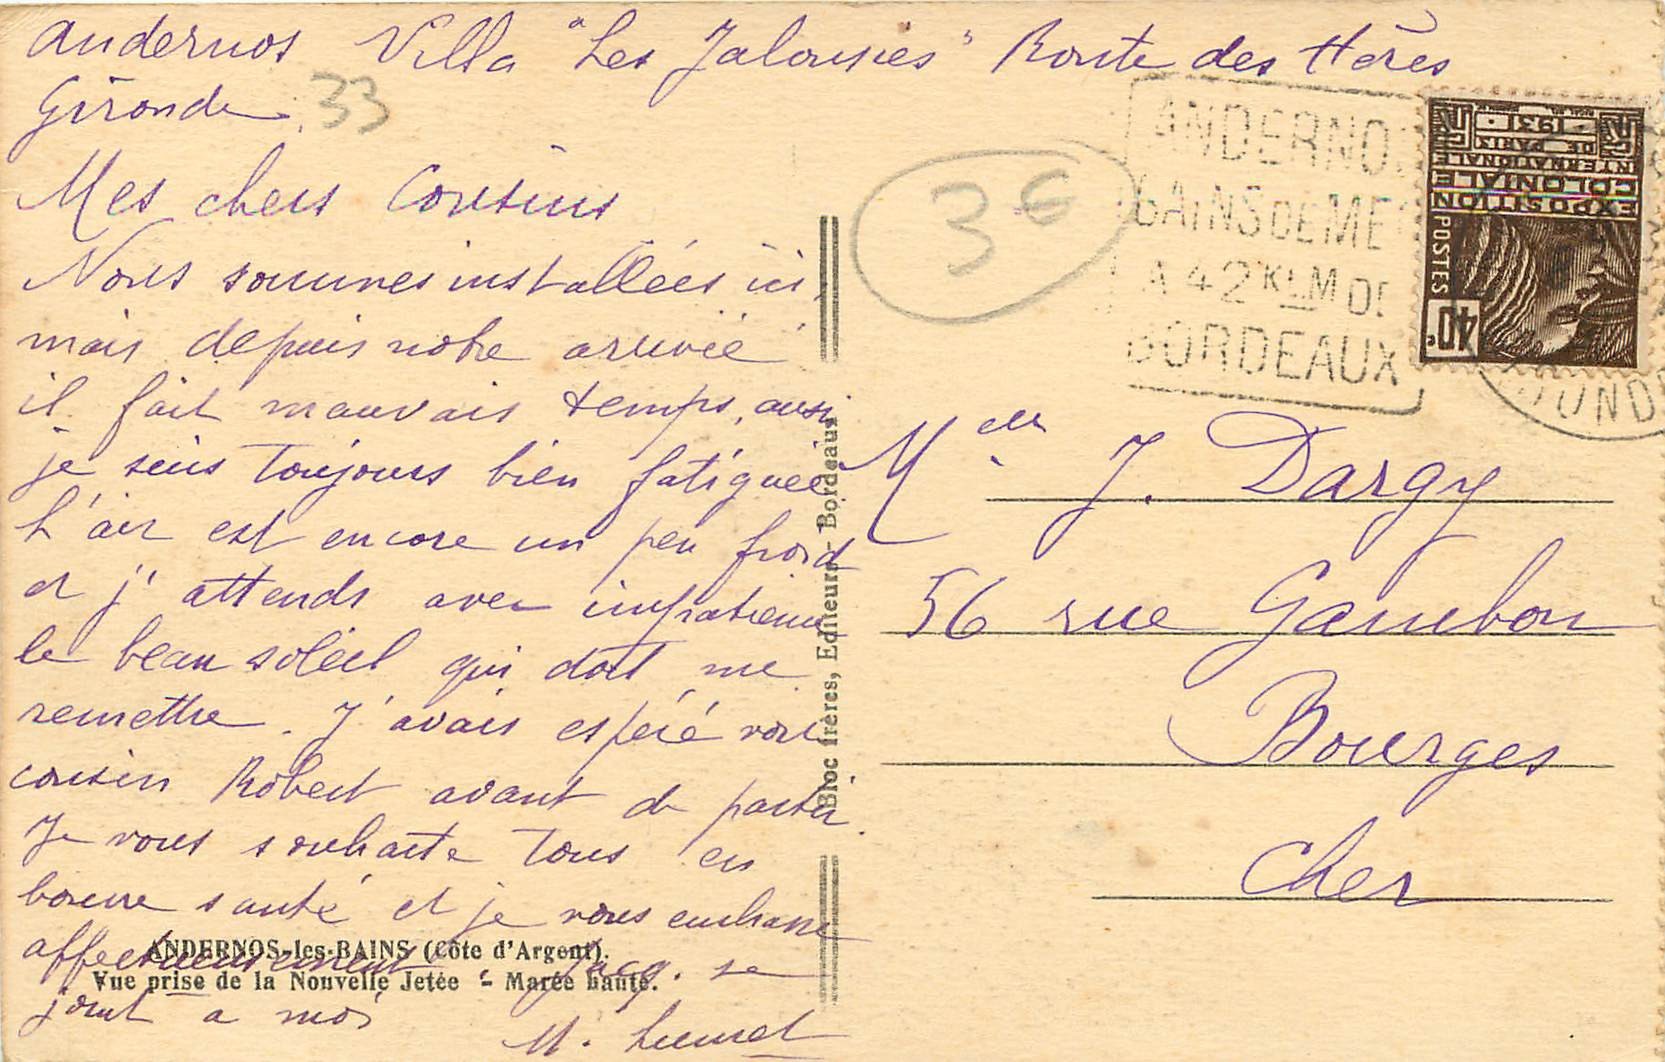 Andernos Villa "Les Jalousies" Route des Hères
Gironde. 33
Mes chers Cousins
Nous sommes installées ici,
mais depuis notre arrivée
il fait mauvais temps, aussi
je suis toujours bien fatiguée
L'air est encore un peu froid
et j'attends avec impatience
le beau soleil qui doit me
remettre. J'avais espéré voir
cousin Robert avant de partir.
Je vous souhaite tous en
bonne santé et je vous embrasse
affectueusement. Jacq. se
joint a moi
M.
ANDERNOS-les-BAINS (Côte d'Argent).
Vue prise de la Nouvelle Jetée - Marée haute.
Bloc frères, Editeurs - Bordeaux
3€
ANDERNOS
bAiNS DE ME
A 42 KLM DE
BORDEAUX
EXPOSITION
COLONIALE
INTERNATIONALE
DE PARIS
·1931·
POSTES
40c.
Melle J. Dargy
56 rue Gambon
Bourges
Cher